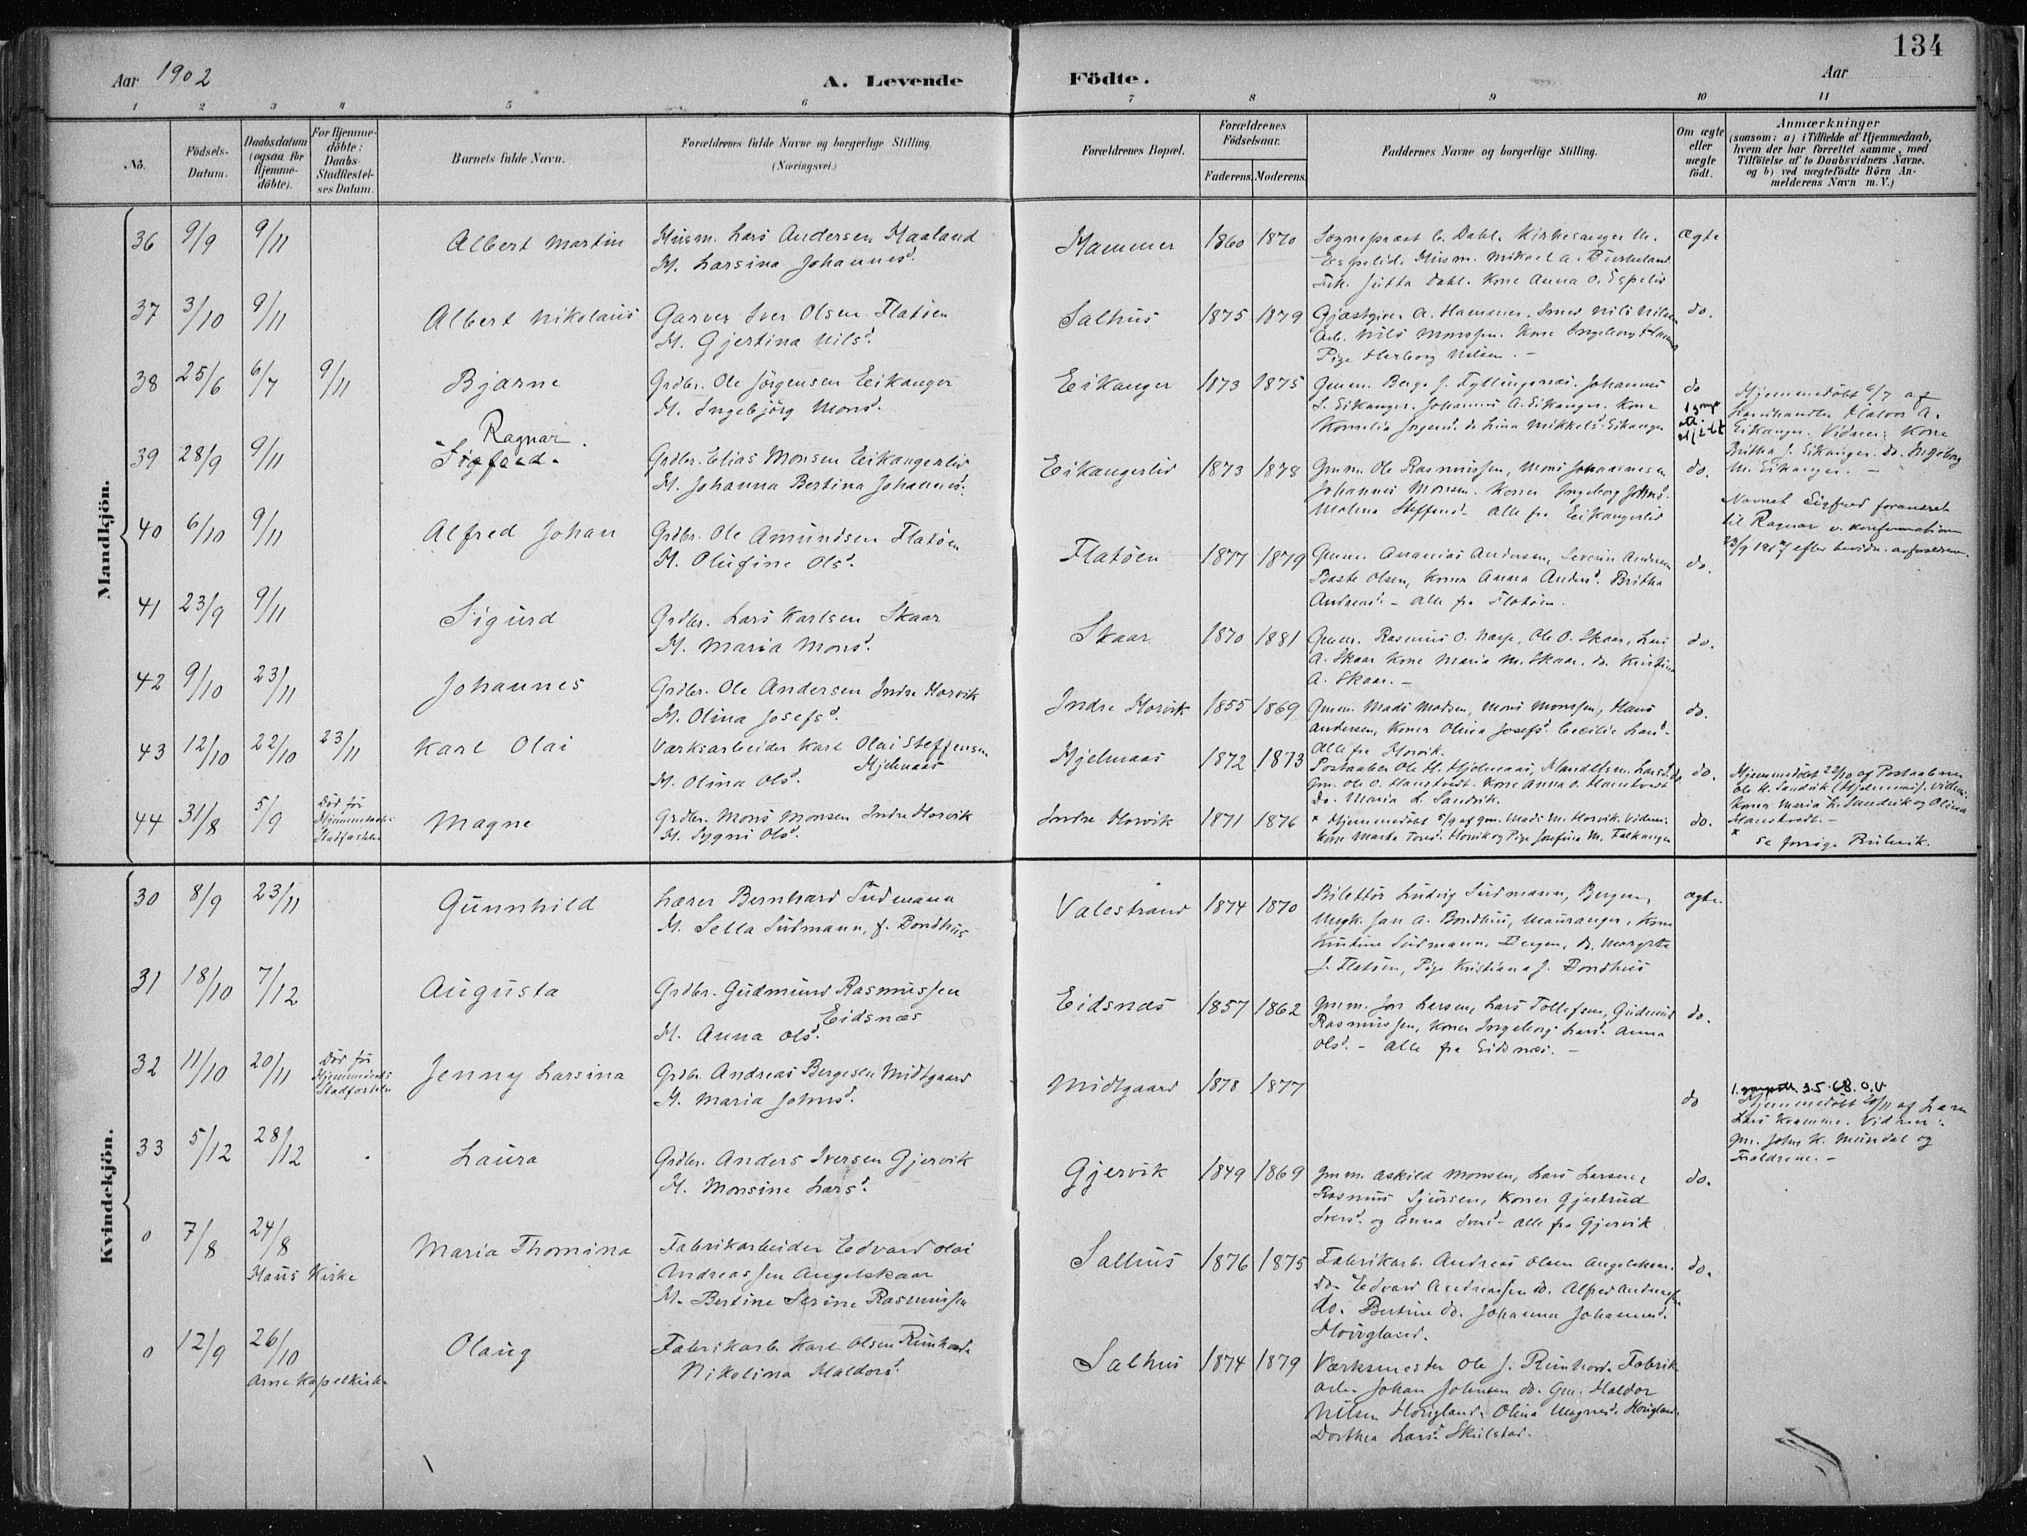 134
Aar 1902
A. Levende
Födte.
Aar
1 2 3 4 5 6 7 8 9 10 11
Nö.
Födsels-Datum.
Daabsdatum (ogsaa for Hjemme-döbte).
For Hjemme-döbte: Daabs-Stadfæstel-ses Datum.
Barnets fulde Navn.
Forældrenes fulde Navne og borgerlige Stilling.
(Næringsvei.)
Forældrenes Bopæl.
Forældrenes Födselsaar.
Faderens. Moderens.
Faddernes Navne og borgerlige Stilling.
Om ægte eller uægte födt.
Anmærkninger
(saasom: a) i Tilfælde af Hjemmedaab, hvem der har forrettet samme, med Tilföielse af to Daabsvidners Navne. og b) ved uægtefödte Börn An-melderens Navn m. V.)
Mandkjön.
36 9/9 9/11 Albert Martin Husm. Lars Andersen Haaland
H. Larsina Johannesd. Hammer 1860 1870 Sognepræst C. Dahl. Kirkesanger M.
Espelid. Husm. Mikael A. Birkeland
Frk. Jutta Dahl. Kone Anna O. Espelid ægte
37 3/10 9/11 Albert Nikolaus Garver Iver Olsen Flatöen
H. Gjertina Nilsd. Salhus 1875 1879 Gjæstgiver A. Hammer. Smed Nils Nilsen
Arb. Nils Monssen. Kone Ingeborg Hammer
Pige Herborg Nilsen. - do.
38 25/6 6/7 9/11 Bjarne Grdbr. Ole Jörgensen Eikanger
H. Ingebjörg Monsd. Eikanger 1873 1875 Gmm. Berge J. Fyllingsnæs. Johannes
J. Eikanger. Johannes A. Eikanger. Kone
Kornelia Jörgensd. do Lina Mikkelsd. Eikanger do
Hjemmedöbt 6/7 af
Landhandler Halvor A.
Eikanger. Vidner: Kone
Britha J. Eikanger. do. Ingeborg
M. Eikanger. -
39 28/9 9/11 Ragnar.
Sigfred. Grdbr. Elias Monsen Eikangerlid
H. Johanna Bertina Johannesd. Eikangerlid 1873 1878 Gmm. Ole Rasmussen, Mons Johannesen
Johannes Monsen. Koner Ingeborg Johnsd.
Malena Steffensd. Alle fra Eikangerlid do.
Navnet Sigfred forandret
til Ragnar v. konfirmationen
23/9 1917 efter
40 6/10 9/11 Alfred Johan Grdbr. Ole Amundsen Flatöen
H. Olufine Olsd. Flatöen 1877 1879 Gmm. Ananias Andersen, Severin Andersen
Baste Olsen, Koner Anna Andersd. Britha
Andersd. - Alle fra Flatöen. do.
41 23/9 9/11 Sigurd Grdbr. Lars Karlsen Skaar
H. Maria Monsd. Skaar 1870 1881 Gmm. Rasmus O. Ole O. Skaar, Lars
A. Skaar Kone Maria M. Skaar, do. Kristina
A. Skaar. - do.
42 9/10 23/11 Johannes Grdbr. Ole Andersen Indre Horvik
H. Olina Josefsd. Indre Horvik 1855 1869 Gmm. Mads Madsen, Mons Monssen, Hans
Andersen, Koner Olina Josefsd. Cecilie Larsd.
Alle fra Horvik. do.
43 12/10 22/10 23/11 Karl Olai Værksarbeider Karl Olai Steffensen
Hjelmaas
H. Olina Olsd. Hjelmaas 1872 1873 Postaabner Ole H. Hjelmaas, Handelsm. Lars do
Gm. Ole O. Hanstvedt. Kone Anna O. Hanstvedt
do. Maria L. Sandvik. do.
Hjemmedöbt 22/10 af Postaabner
Ole H. Sandvik (Hjelmaas). Vidner:
Koner Maria L. Sandvik og Olina
Hanstvedt. -
44 31/8 5/9 Död för
Hjemmedaabs
Stadfæstelse Magne Grdbr. Mons Monsen Indre Horvik
H. Sygni Olsd. Indre Horvik 1871 1876 * Hjemmedöbt 5/9 af gm. Mads M. Horvik. Vidner:
Kone Marta Tored. Horvik og Pige Josefina M. Falkanger do.
* se forrige Rubrik.
Kvindekjön.
30 8/9 23/11 Gunnhild Lærer Bernhard Sudmann
H. Sella Sudmann, f. Bondhus Valestrand 1874 1870 Biletör Ludvig Sudmann, Bergen,
Ungk. Jan A. Bondhus, Mauranger, Kone
Kristine Sudmann, Bergen, do. Margrethe
J. Flatöen, Pige Kristiana J. Bondhus ægte.
31 18/10 7/12 Augusta Grdbr. Gudmund Rasmussen
Eidsnæs
H. Anna Olsd. Eidsnæs 1857 1862 Gmm. Jon Larsen, Lars Tollefsen, Gudmund
Rasmussen, Koner Ingeborg Larsd. Anna
Olsd. - Alle fra Eidsnæs. - do.
32 11/10 20/11 Död för
Hjemmedaabs
Stadfæstelse Jenny Larsina Grdbr. Andreas Bergesen Midtgaard
H. Maria Johnsd. Midtgaard 1878 1877 do
3.5.68. O.V.
Hjemmedöbt 20/11 af Lærer
Lars Kvamme. Vidner:
Gm. John K. Mundal og
Forældrene. -
33 5/12 28/12 Laura Grdbr. Anders Iversen Gjervik
H. Monsine Larsd. Gjervik 1849 1869 Gmm. Askild Monsen, Lars Larsen,
Rasmus Sjursen, Koner Gjertrud
Iversd. og Anna Iversd. Alle fra Gjervik do.
0 7/8 24/8
Haus Kirke Maria Thomina Fabrikarbeider Edvard Olai
Andreassen Angelskaar
H. Bertine Serine Rasmussen Salhus 1876 1875 Fabrikarb. Andreas Olsen Angelskaar.
do. Edvard Andreassen do. Alfred Andreassen
do. Bertine do. Johanna Johannesd.
Hougland. do.
0 12/9 26/10
Arne Kapelkirke Olaug Fabrikarb. Karl Olsen Rimhord
Nikolina Haldorsd. Salhus 1874 1879 Værksmester Ole J. Rimhord. Fabrik
arb. Johan Johnsen do. Gm. Haldor
Nilsen Hougland. Olina Magnesd. Hougland.
Dorthea Larsd. Skulstad.